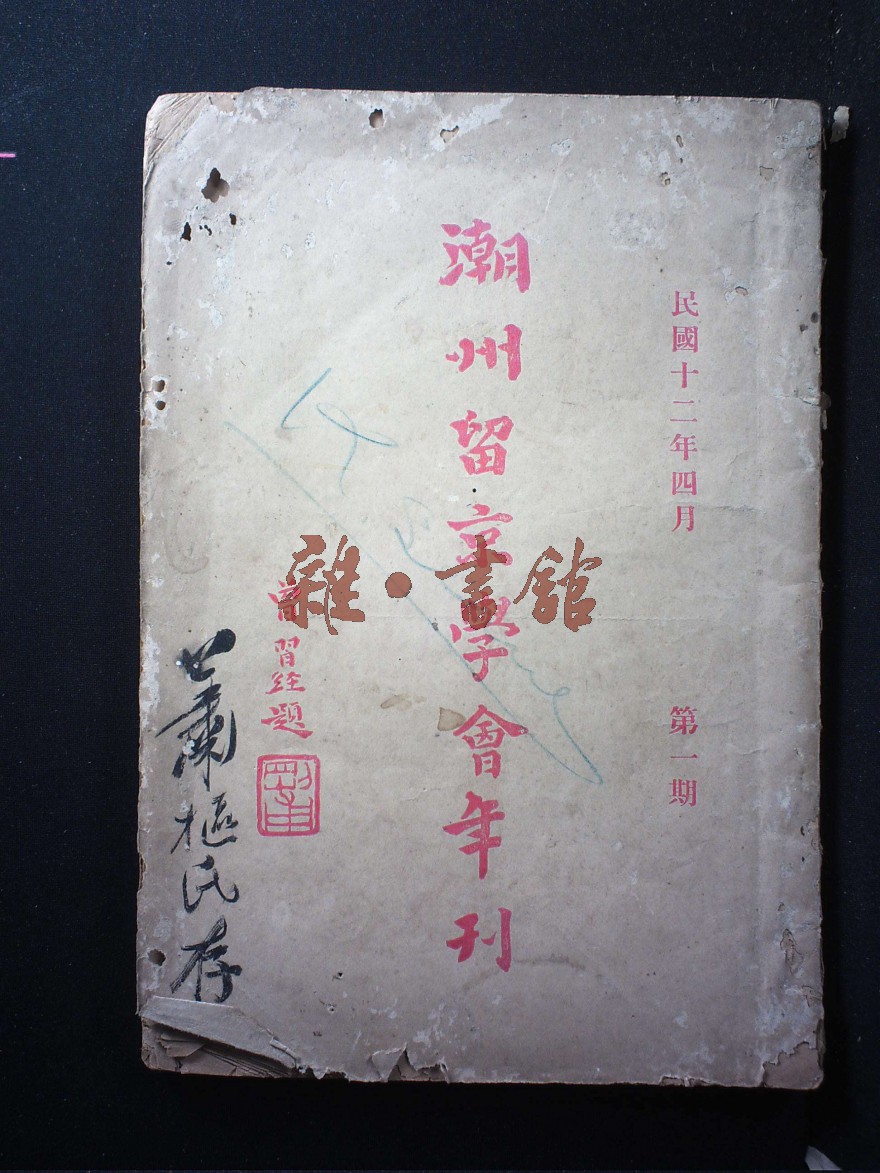 民國十二年四月
第一期
潮州留京學會年刊
曾習經題
蕭樞氏存
雜·書館